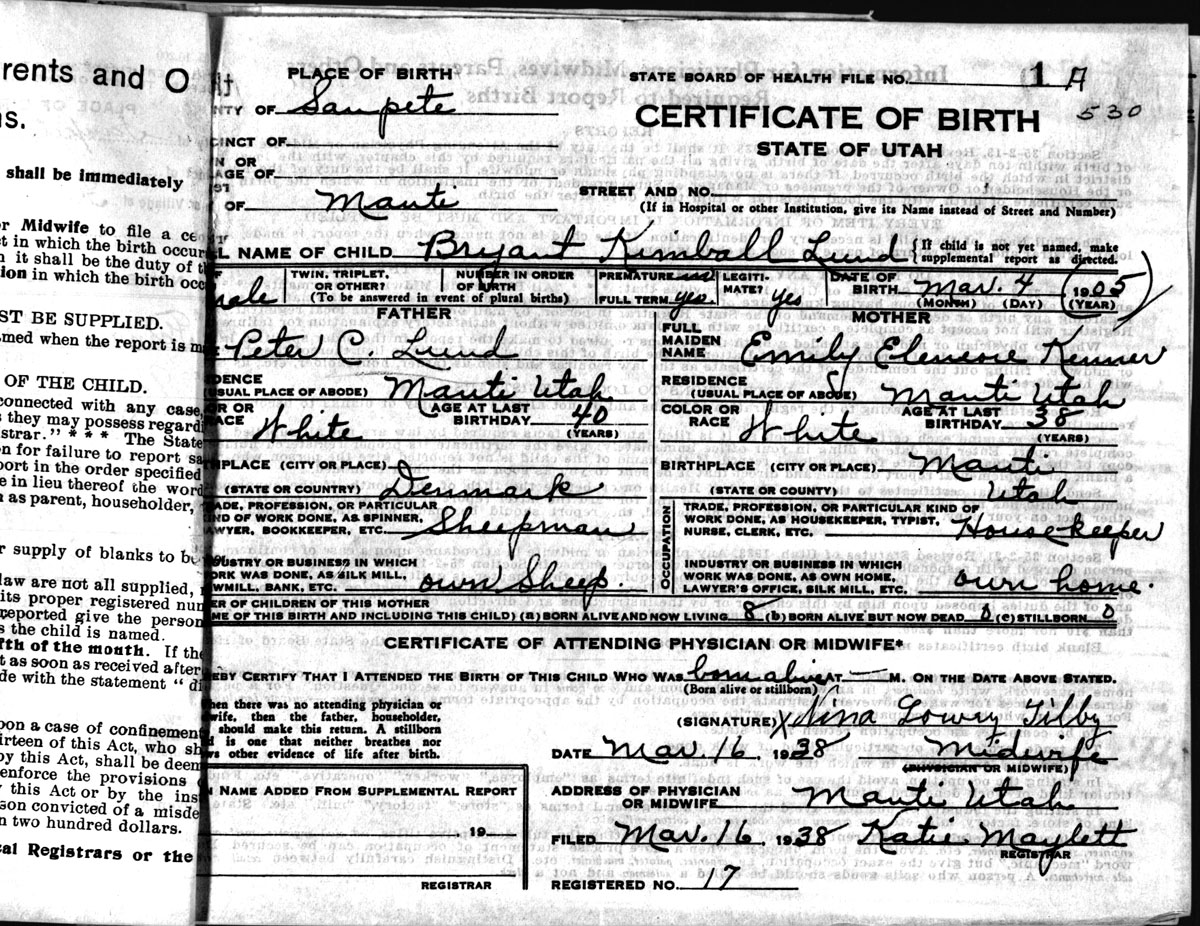 rents and O
s.
shall be immediately
or Midwife to file a ce
t in which the birth occur
it shall be the duty of t
tion in which the birth occ
ST BE SUPPLIED.
med when the report is m
OF THE CHILD.
connected with any case,
s they may possess regardi
strar." * * * The State
n for failure to report sa
port in the order specified
e in lieu thereof the word
n as parent, householder,
r supply of blanks to be
law are not all supplied,
its proper registered num
reported give the person
s the child is named.
fth of the month. If the
t as soon as received after
de with the statement "di
pon a case of confinement
irteen of this Act, who sh
by this Act, shall be deem
enforce the provisions
y this Act or by the ins
son convicted of a misde
n two hundred dollars.
cal Registrars or the
PLACE OF BIRTH
STATE BOARD OF HEALTH FILE NO. 1 A
530
NTY OF Sanpete
CERTIFICATE OF BIRTH
STATE OF UTAH
CINCT OF
N OR
AGE OF
STREET AND NO.
OF Manti
(If in Hospital or other Institution, give its Name instead of Street and Number)
L NAME OF CHILD Bryant Kimball Lund {If child is not yet named, make supplemental report as directed.
male
TWIN, TRIPLET, OR OTHER?
NUMBER IN ORDER OF BIRTH
(To be answered in event of plural births)
PREMATURE no
FULL TERM yes
LEGITI-MATE? yes
DATE OF BIRTH Mar. 4 1905
(MONTH) (DAY) (YEAR)
FATHER
Peter C. Lund
DENCE
(USUAL PLACE OF ABODE) Manti Utah
OR OR RACE White
AGE AT LAST BIRTHDAY 40
(YEARS)
HPLACE (CITY OR PLACE)
(STATE OR COUNTRY) Denmark
ADE, PROFESSION, OR PARTICULAR
ND OF WORK DONE, AS SPINNER,
WYER, BOOKKEEPER, ETC. Sheepman
USTRY OR BUSINESS IN WHICH
ORK WAS DONE, AS SILK MILL,
WMILL, BANK, ETC. own Sheep.
MOTHER
FULL MAIDEN NAME Emily Elenore Kenner
RESIDENCE
(USUAL PLACE OF ABODE) Manti Utah
COLOR OR RACE White
AGE AT LAST BIRTHDAY 38
(YEARS)
BIRTHPLACE (CITY OR PLACE) Manti
(STATE OR COUNTY) Utah
OCCUPATION
TRADE, PROFESSION, OR PARTICULAR KIND OF
WORK DONE, AS HOUSEKEEPER, TYPIST,
NURSE, CLERK, ETC. House-keeper
INDUSTRY OR BUSINESS IN WHICH
WORK WAS DONE, AS OWN HOME,
LAWYER'S OFFICE, SILK MILL, ETC. own home.
ER OF CHILDREN OF THIS MOTHER
ME OF THIS BIRTH AND INCLUDING THIS CHILD) (a) BORN ALIVE AND NOW LIVING 8 (b) BORN ALIVE BUT NOW DEAD 0 (c) STILLBORN 0
CERTIFICATE OF ATTENDING PHYSICIAN OR MIDWIFE*
EBY CERTIFY THAT I ATTENDED THE BIRTH OF THIS CHILD WHO WAS born alive AT — M. ON THE DATE ABOVE STATED.
(Born alive or stillborn)
hen there was no attending physician or
wife, then the father, householder,
should make this return. A stillborn
d is one that neither breathes nor
ws other evidence of life after birth.
(SIGNATURE) X Nina Lowry Tilby
DATE Mar. 16 1938 Midwife
(PHYSICIAN OR MIDWIFE)
N NAME ADDED FROM SUPPLEMENTAL REPORT
, 19
REGISTRAR
ADDRESS OF PHYSICIAN
OR MIDWIFE Manti Utah
FILED Mar. 16 1938 Katie Maylett
REGISTRAR
REGISTERED NO. 17